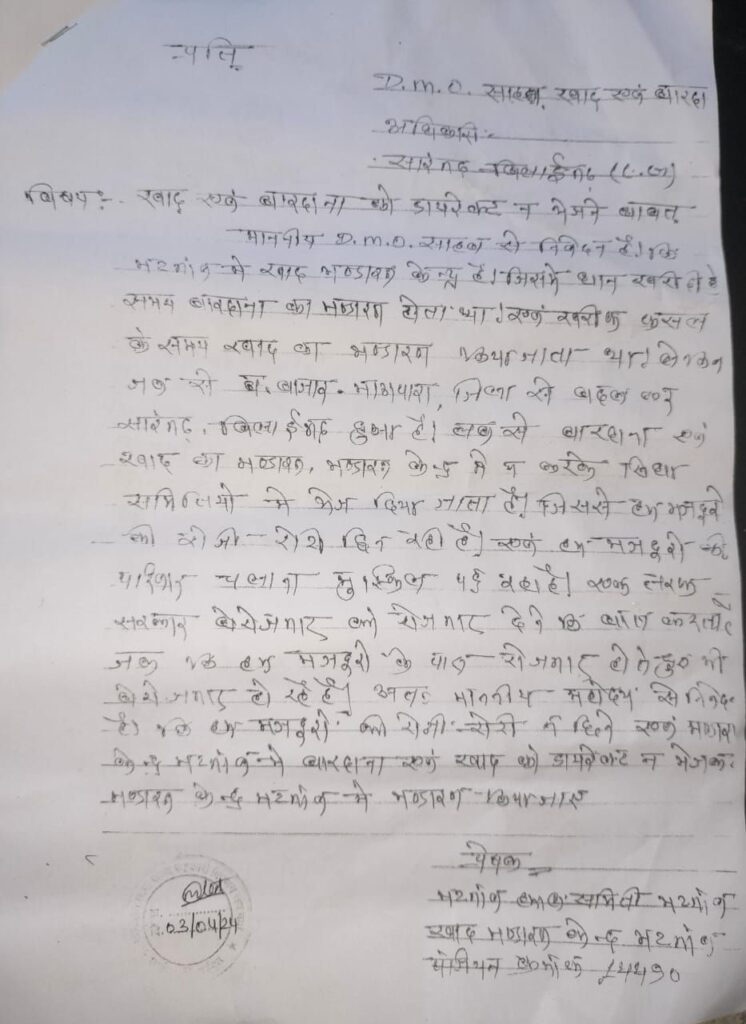 प्रति,
D.M.O. साहब, खाद एवं बारदा
अधिकारी :-
सारंगढ़-बिलाईगढ़ (C.G)
विषय :- खाद एवं बारदाना को डायरेक्ट न भेजने बाबत्
माननीय D.M.O. साहब से निवेदन है। कि
भटगांव में खाद भण्डारण केन्द्र है। जिसमें धान खरीदी के
समय बारदाना का भण्डारण होता था। एवं खरीफ फसल
के समय खाद का भण्डारण किया जाता था। लेकिन
जब से ब. बाजार - भाठापारा, जिला से बदल कर
सारंगढ़, बिलाईगढ़ हुआ है। तब से बारदाना एवं
खाद का भण्डारण, भण्डारण केन्द्र में न करके सिधा
समितियो में भेज दिया जाता है। जिससे हम मजदुरो
की रोजी-रोटी छिन रही है। एवं हम मजदुरो की
परिवार चलाना मुस्किल पड़ रहा है। एक तरफ
सरकार बेरोजगार को रोजगार देने कि बात करती है
जब कि हम मजदुरो के पास रोजगार होते हुए भी
बेरोजगार हो रहे है। अतः माननीय महोदय से निवेदन
है। कि हम मजदुरो की रोजी-रोटी न छिने एवं भण्डारण
केन्द्र भटगांव में बारदाना एवं खाद को डायरेक्ट न भेजकर
भण्डारण केन्द्र भटगांव में भण्डारण किया जाए
प्रेषक
भटगांव हमाल समिती भटगांव
खाद भण्डारण केन्द्र भटगांव
पंजियन क्रमांक
03/04/24